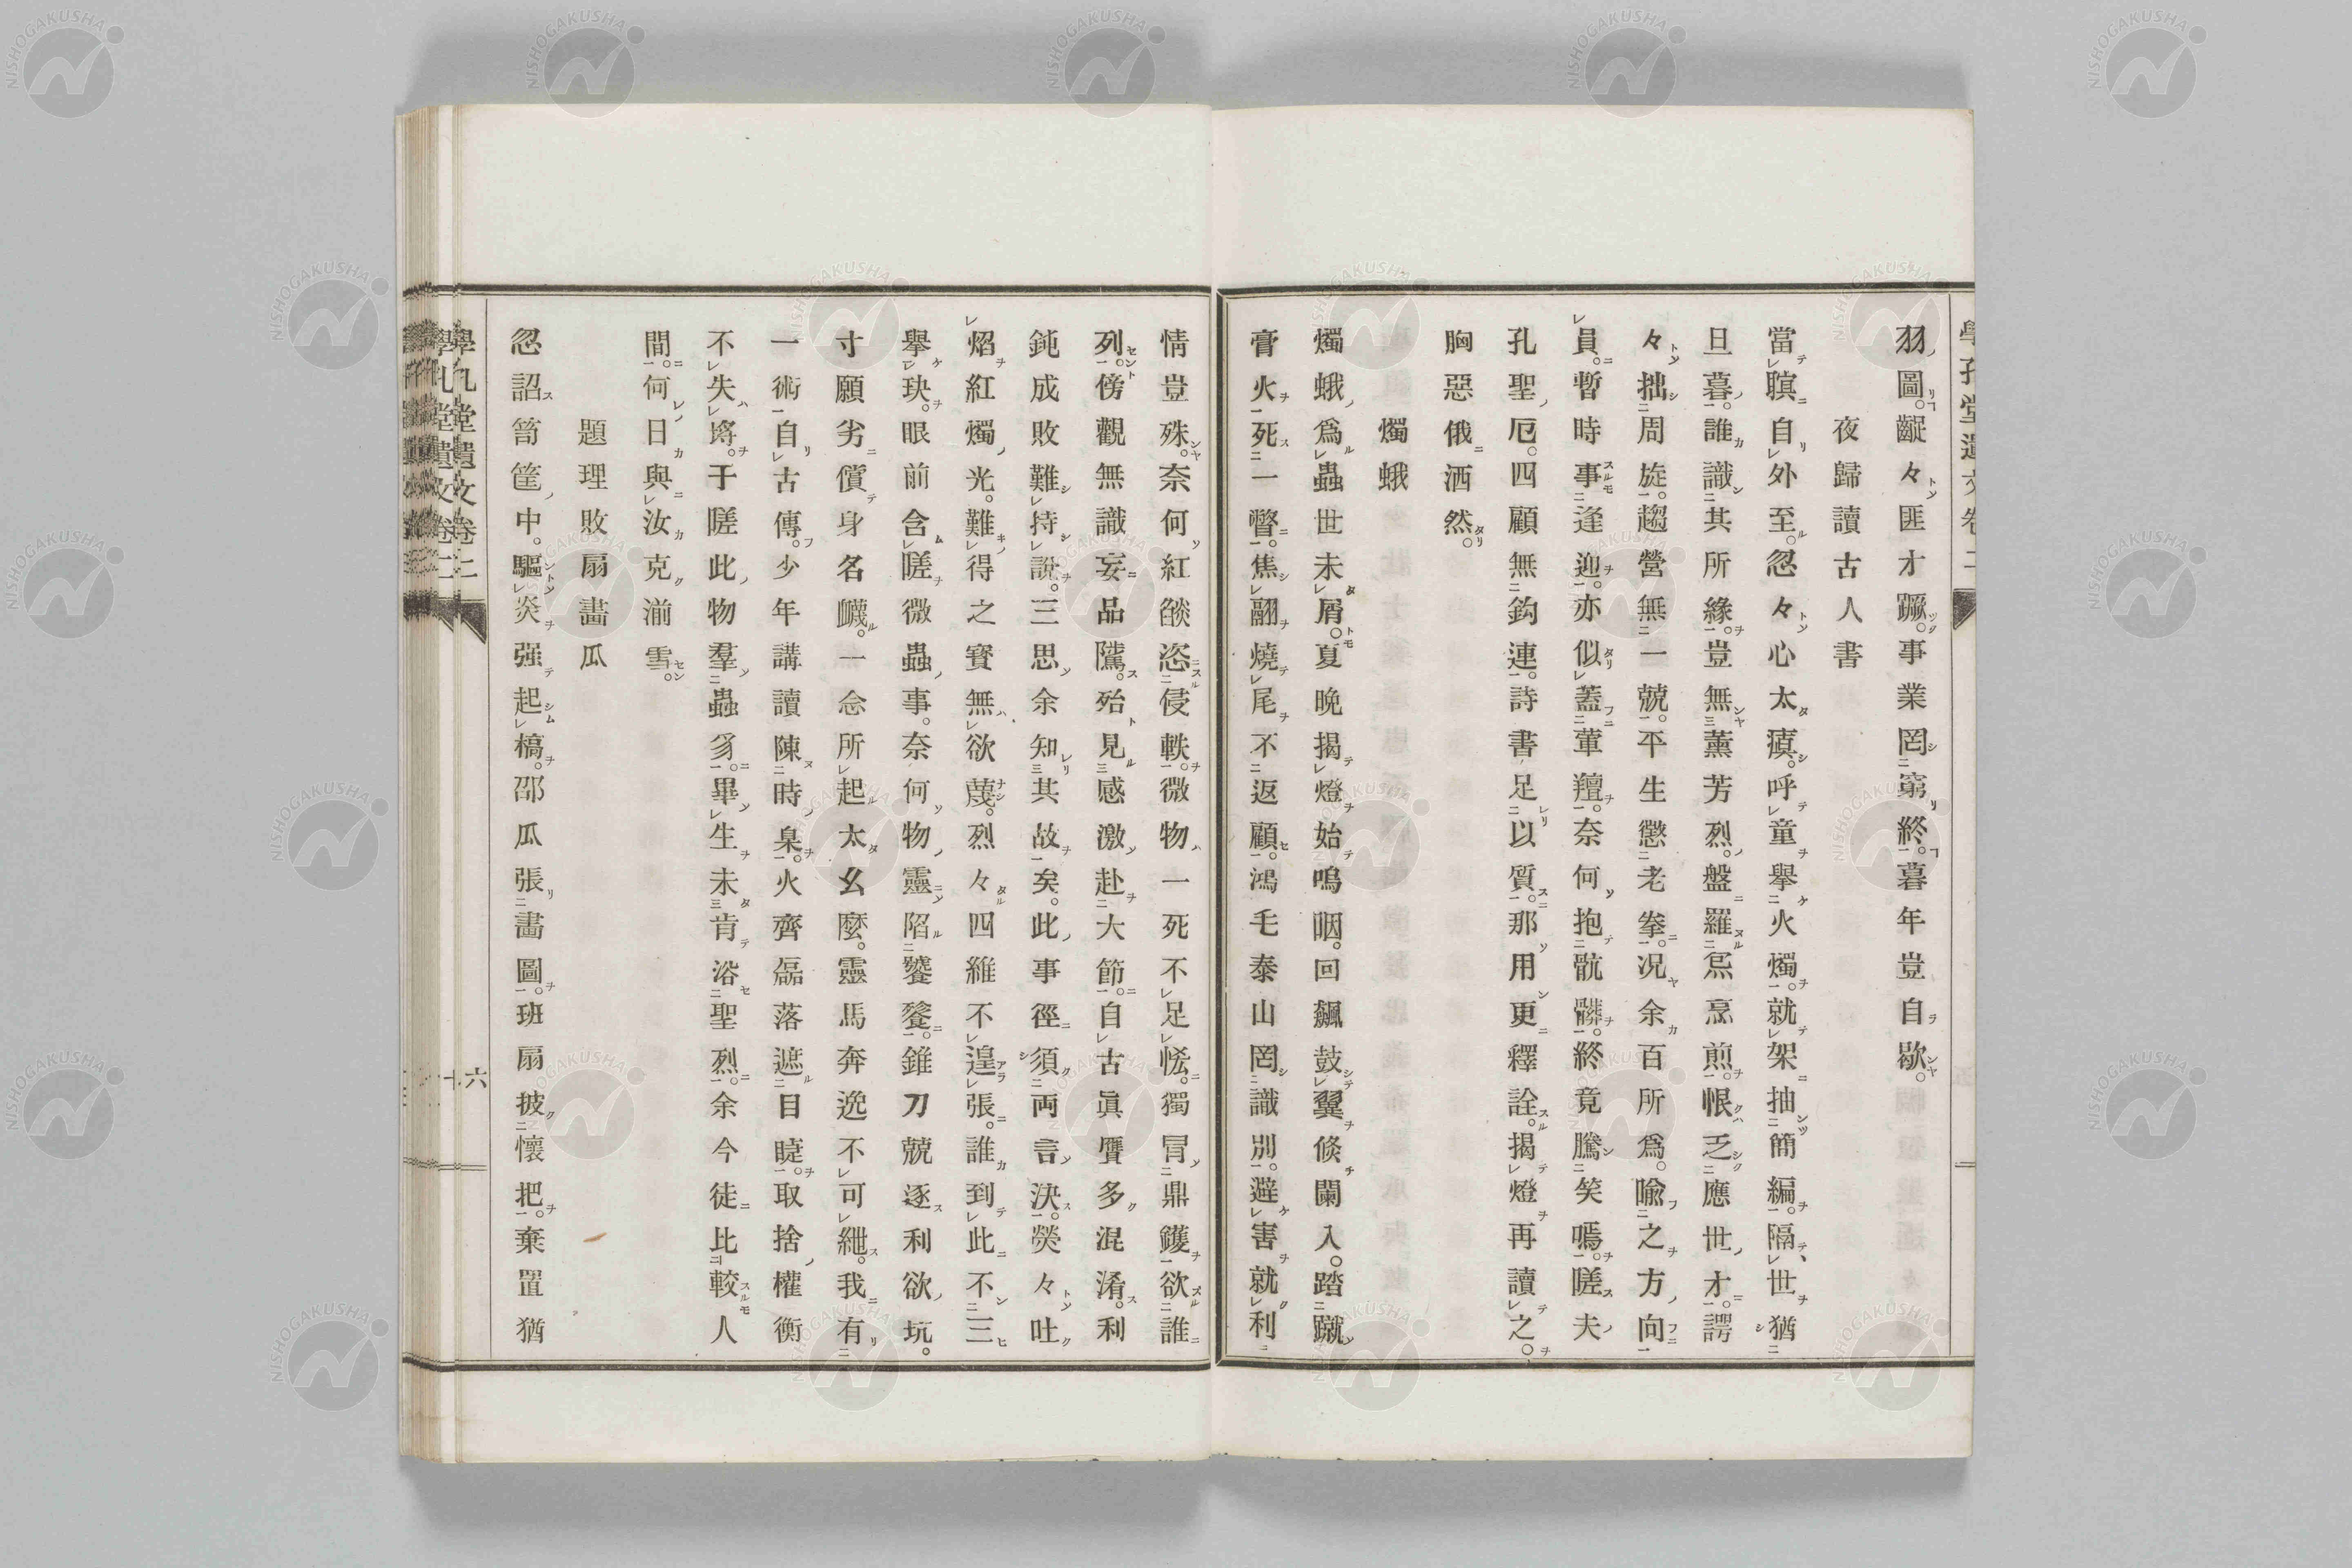 學孔堂遺文卷二
羽圖。齪々匪才蹶。事業罔窮終。暮年豈自歇。
夜歸讀古人書
當瞑自外至。忽々心太瘨。呼童擧火燭。就架抽簡編。隔世猶
旦暮。誰識其所緣。豈無薰芳烈。盤羅炰烹煎。恨乏應世才。諤
々拙周旋。趨營無一兢。平生懲老拳。况余百所爲。喩之方向
員。暫時事逢迎。亦似蓋葷羶。奈何抱骯髒。終竟騰笑嗎。嗟夫
孔聖厄。四顧無鈎連。詩書足以質。那用更釋詮。揭燈再讀之。
胸惡俄洒然。
燭蛾
燭蛾爲蟲世未屑。夏晚揭燈始嗚咽。回飆鼓翼倏闌入。踏蹴
膏火死一瞥。焦翮燒尾不返顧。鴻毛泰山罔識別。避害就利
情豈殊。奈何紅燄恣侵軼。微物一死不足恡。獨冒鼎鑊欲誰
列。傍觀無識妄品隲。殆見感激赴大節。自古眞贋多混淆。利
鈍成敗難持說。三思余知其故矣。此事徑須両言決。熒々吐
焰紅燭光。難得之寶無欲蔑。烈々四維不遑張。誰到此不三
擧玦。眼前含嗟微蟲事。奈何物靈陷饕餮。錐刀兢逐利欲坑。
寸願劣償身名衊。一念所起太幺麼。靈馬奔逸不可紲。我有
一術自古傳。少年講讀陳時臬。火齊磊落遮目睫。取捨權衡
不失將。于嗟此物羣蟲豸。畢生未肯浴聖烈。余今徒比較人
間。何日與汝克湔雪。
題理敗扇畵瓜
忽詔笥筐中。驅炎强起槁。邵瓜張畵圖。班扇披懷把。棄罝猶
學孔堂遺文卷二
六